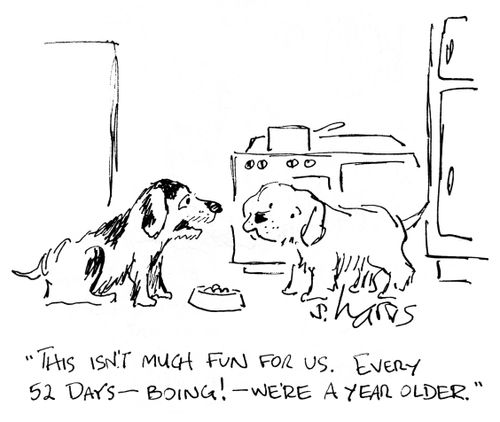 S. Harris
"THIS ISN'T MUCH FUN FOR US. EVERY
52 DAYS—BOING!—WE'RE A YEAR OLDER."